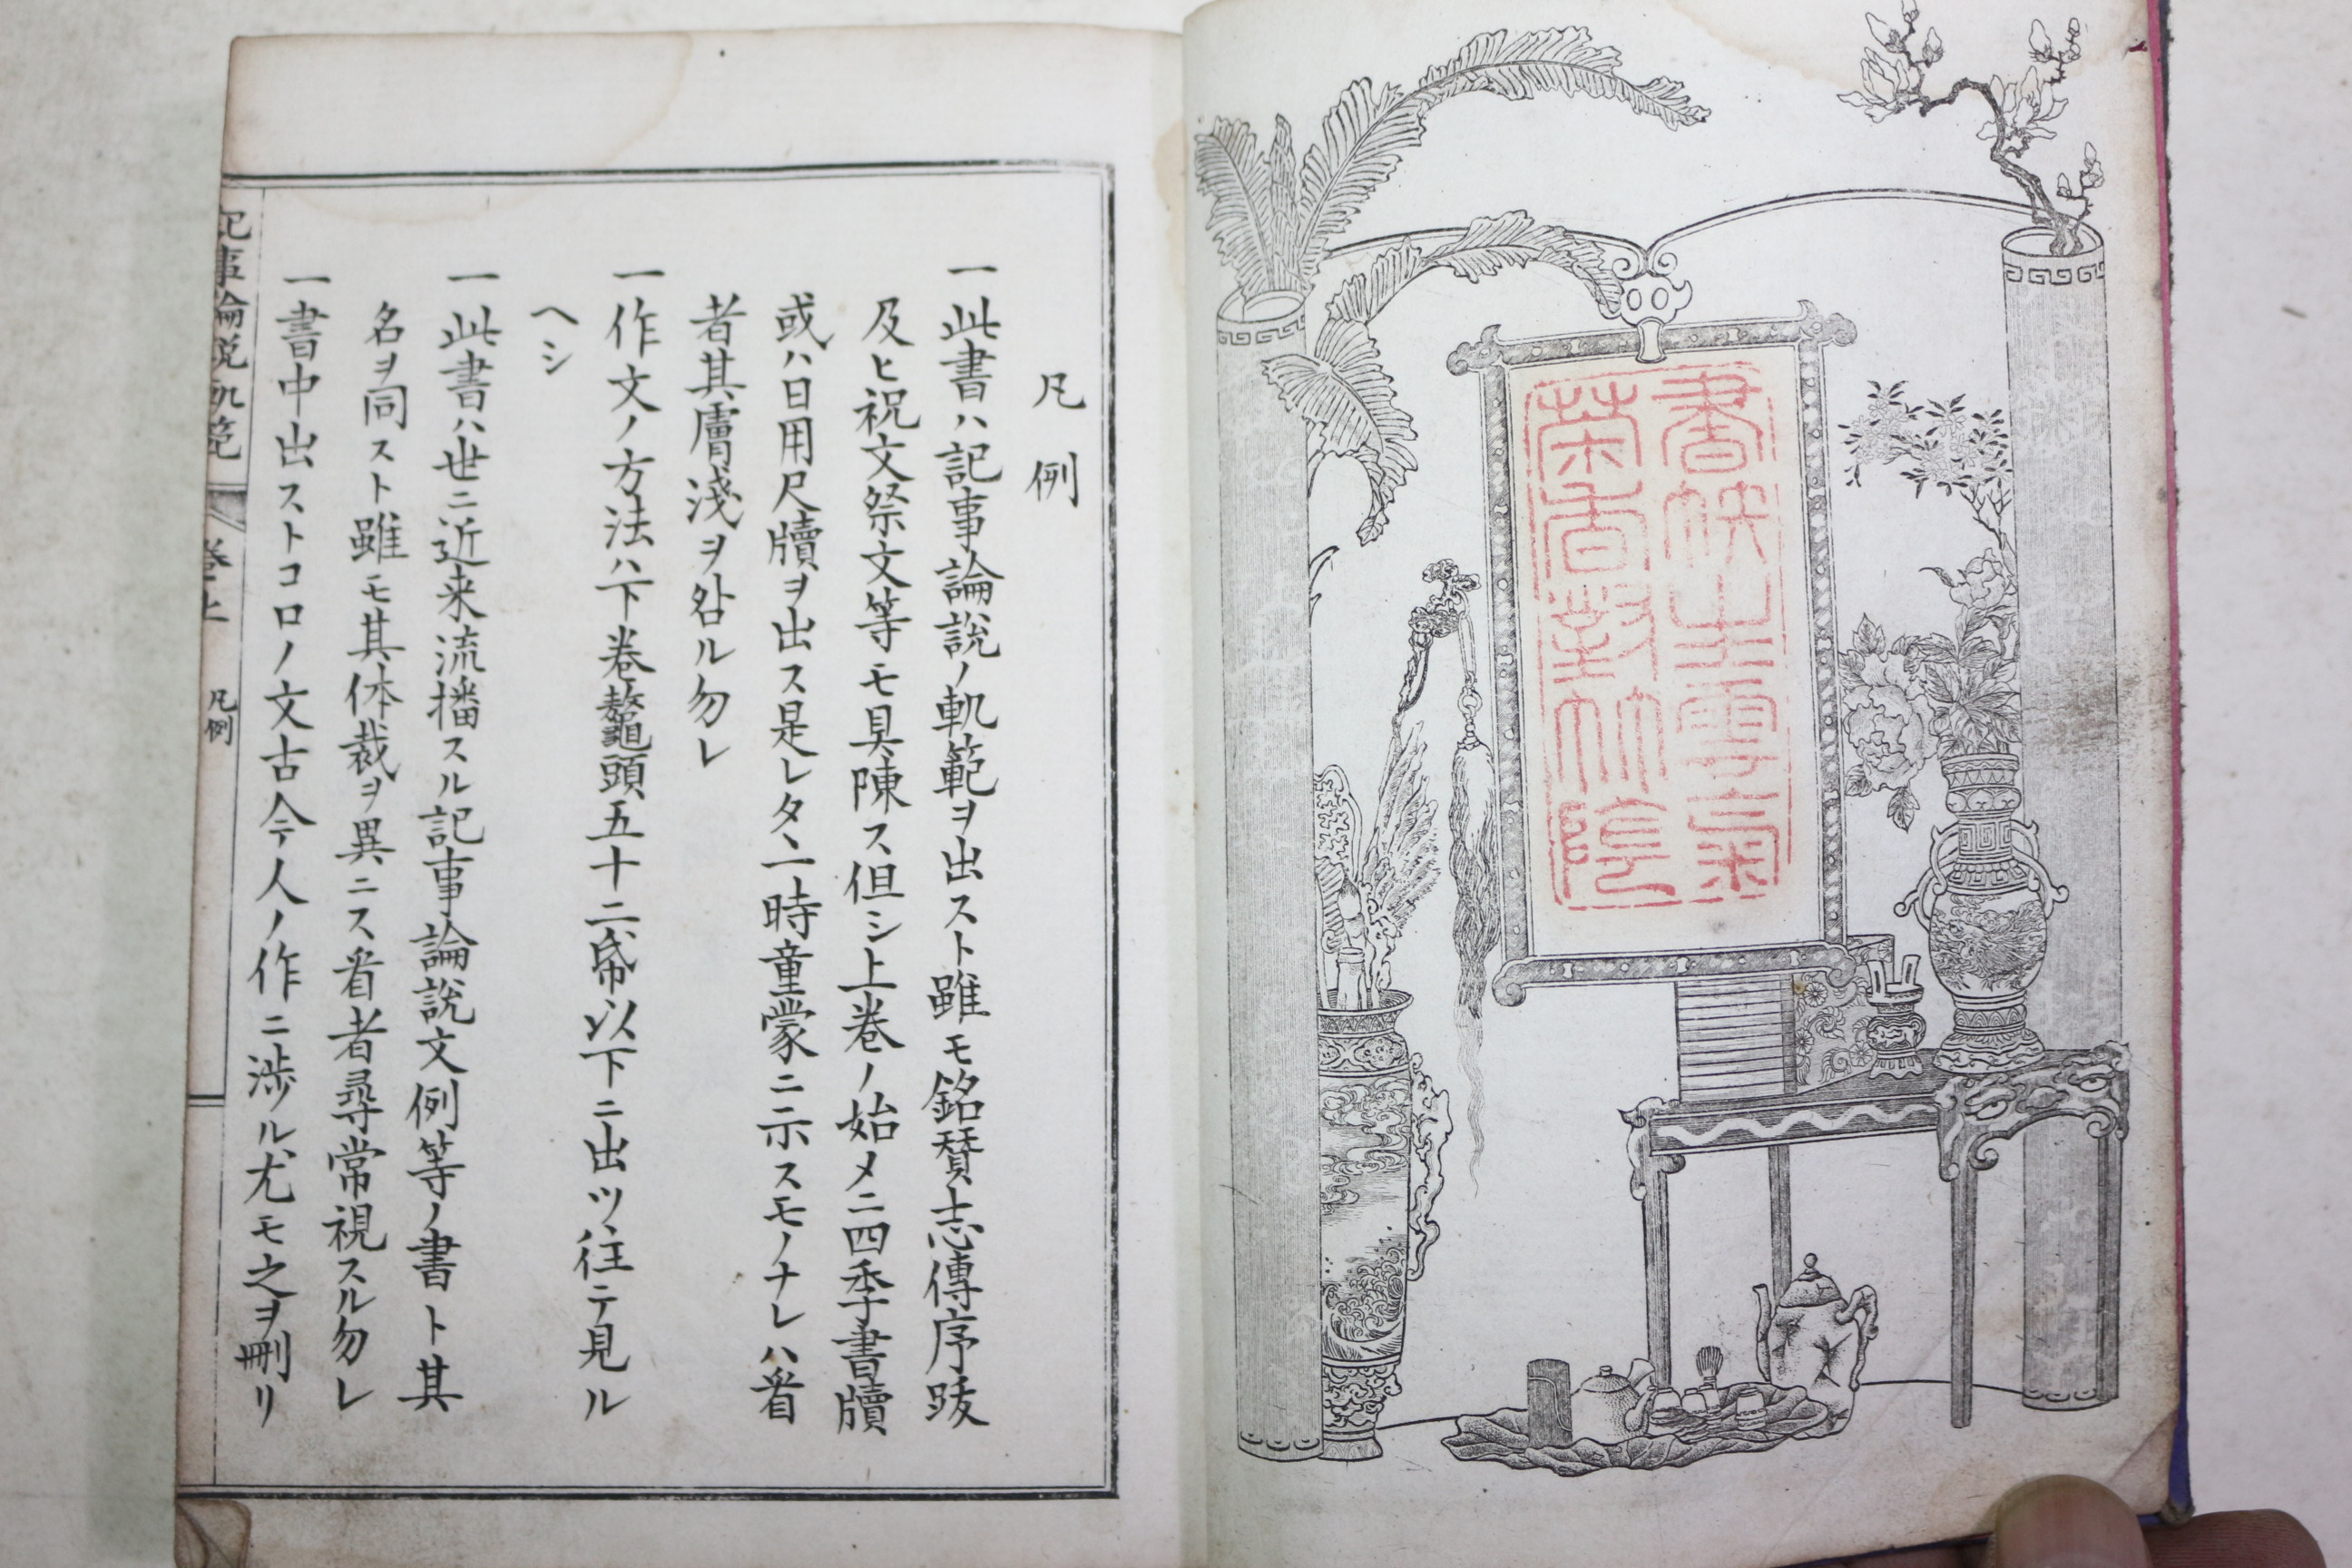 書帙生雲氣
茶香對竹陰
凡例
一此書ハ記事論說ノ軌範ヲ出スト雖モ銘賛志傳序跋
及ヒ祝文祭文等モ具陳ス但シ上巻ノ始メニ四季書牘
或ハ日用尺牘ヲ出ス是レタ一時童蒙ニ示スモノナレハ看
者其膚淺ヲ咎ル勿レ
一作文ノ方法ハ下巻鼇頭五十二帋以下ニ出ツ往テ見ル
ヘシ
一此書ハ世ニ近来流播スル記事論說文例等ノ書ト其
名ヲ同スト雖モ其体裁ヲ異ニス看者尋常視スル勿レ
一書中出ストコロノ文古今人ノ作ニ渉ル尤モ之ヲ刪リ
記事論說軌範 巻上 凡例